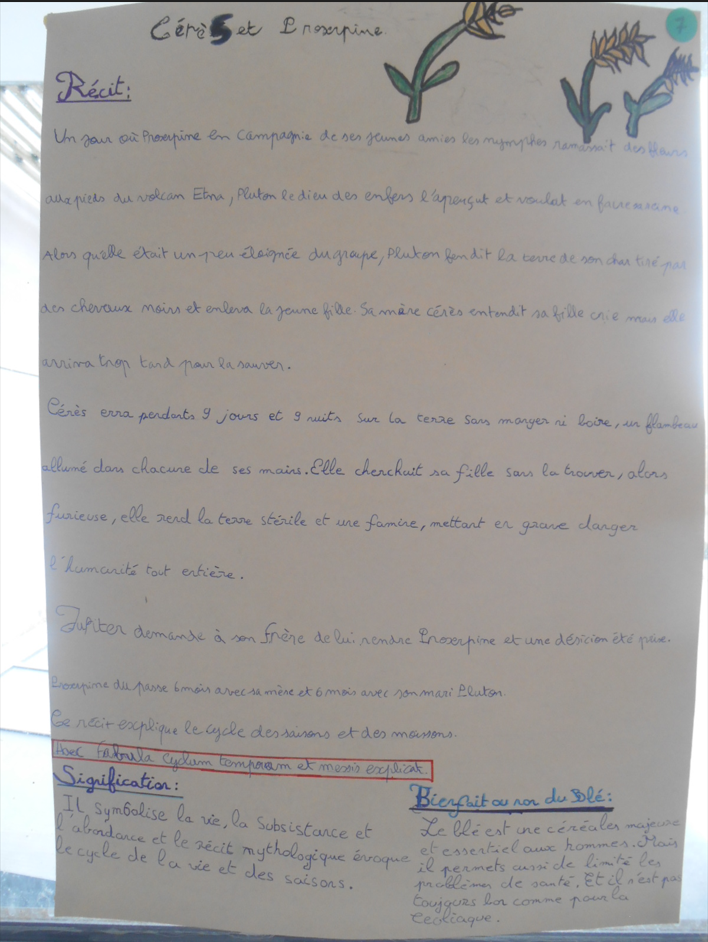 Cérès et Proserpine
7
Récit:
Un jour où Proserpine en Compagnie de ses jeunes amies les nymphes ramassait des fleurs
aux pieds du volcan Etna, Pluton le dieu des enfers l'aperçut et voulat en faire sa reine
Alors qu'elle était un peu éloignée du groupe, Pluton fendit la terre de son char tiré par
des chevaux noirs et enleva la jeune fille. Sa mère cérès entendit sa fille crie mais elle
arriva trop tard pour la sauver.
Cérès erra pendants 9 jours et 9 nuits sur la terre sans manger ni boire, un flambeau
allumé dans chacune de ses mains. Elle cherchait sa fille sans la trouver, alors
furieuse, elle rend la terre stérile et une famine, mettant en grave danger
l'humanité tout entière.
Jupiter demande à son frère de lui rendre Proserpine et une désicion été prise.
Proserpine du passe 6 mois avec sa mère et 6 mois avec son mari Pluton.
Ce récit explique le cycle des saisons et des moissons.
Haec Fabula cyclum temporam et messis explicat.
Signification:
Il symbolise la vie, la Subsistance et
l'abondance et le récit mythologique évoque
le cycle de la vie et des saisons.
Bienfait ou non du Blé:
Le blé est une céréales majeure
et essentiel aux hommes. Mais
il permets aussi de limité les
problèmes de santé. Et il n'est pas
toujours bon comme pour la
Ceoliaque.